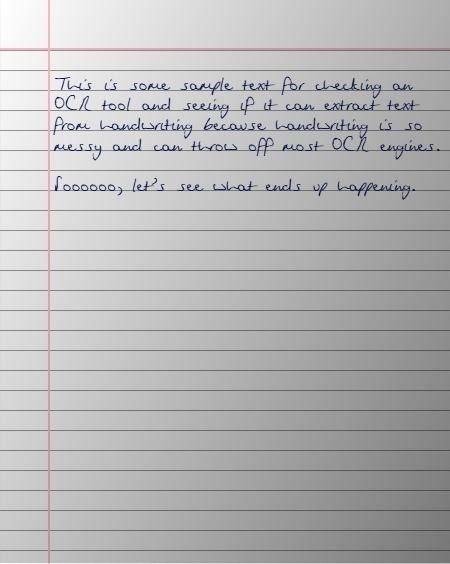 This is some sample text for checking an
OCR tool and seeing if it can extract text
from handwriting because handwriting is so
messy and can throw off most OCR engines.
Soooooo, let's see what ends up happening.